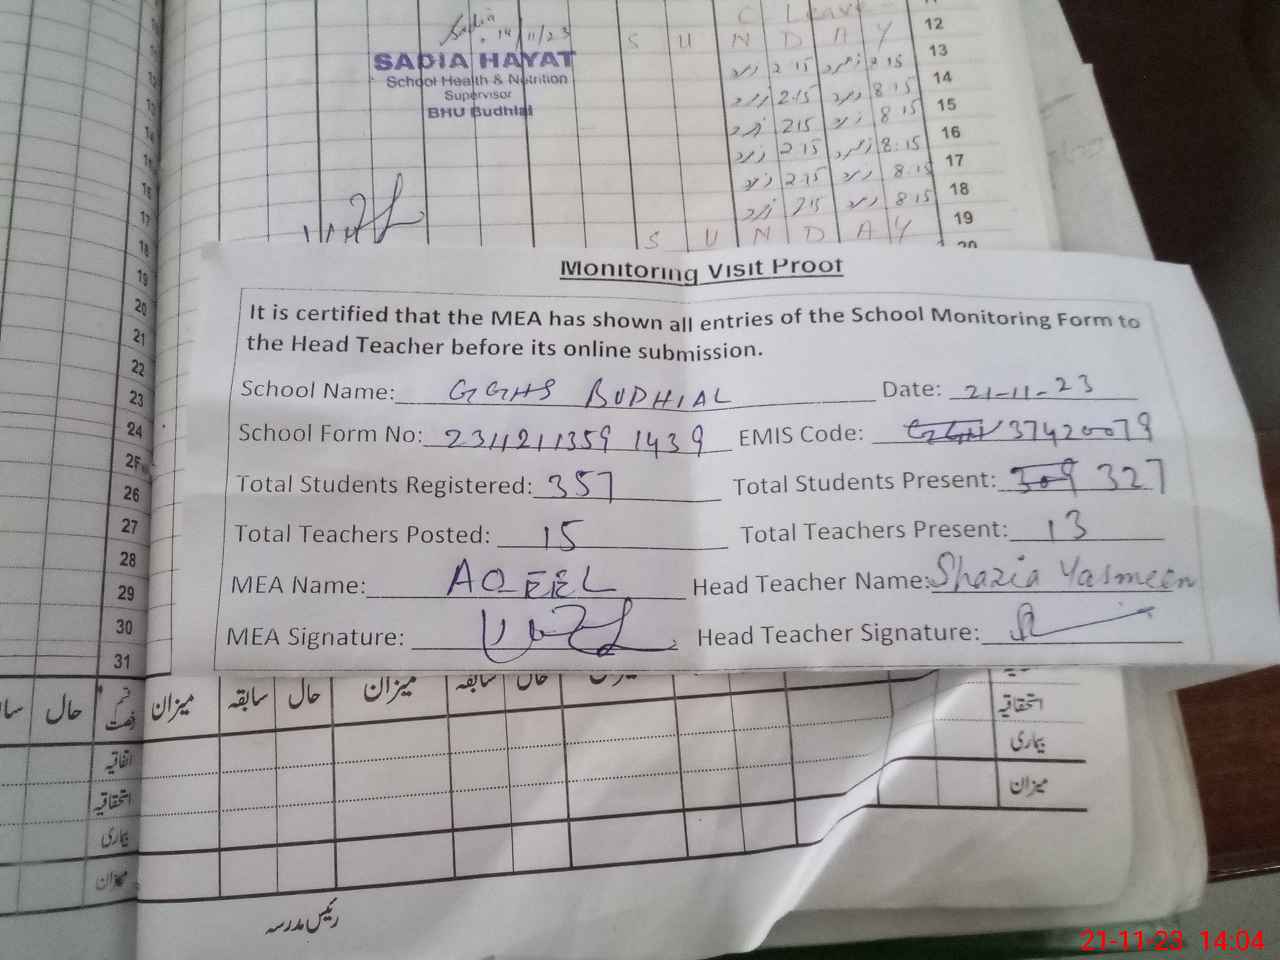 C Leave
12
Sadia 14/11/23
S U N D A Y
13
SADIA HAYAT
School Health & Nutrition
Supervisor
BHU Budhial
2 15 8 15
14
2.15 8 15
15
215 8 15
16
2 15 8:15
17
2.15 8.15
18
215 8 15
19
S U N D A Y
20
Monitoring Visit Proof
It is certified that the MEA has shown all entries of the School Monitoring Form to
the Head Teacher before its online submission.
School Name: GGHS BUDHIAL Date: 21-11-23
School Form No: 2311211359 1439 EMIS Code: 37420079
Total Students Registered: 357 Total Students Present: 309 327
Total Teachers Posted: 15 Total Teachers Present: 13
MEA Name: AQEEL Head Teacher Name: Shazia Yasmeen
MEA Signature: Head Teacher Signature:
17
18
19
20
21
22
23
24
25
26
27
28
29
30
31
حال میزان سابقہ حال میزان سابقہ حال میزان
اتفاقیہ
استحقاقیہ
بیماری
میزان
استحقاقیہ
بیماری
میزان
رئیس مدرسہ
21-11-23 14:04